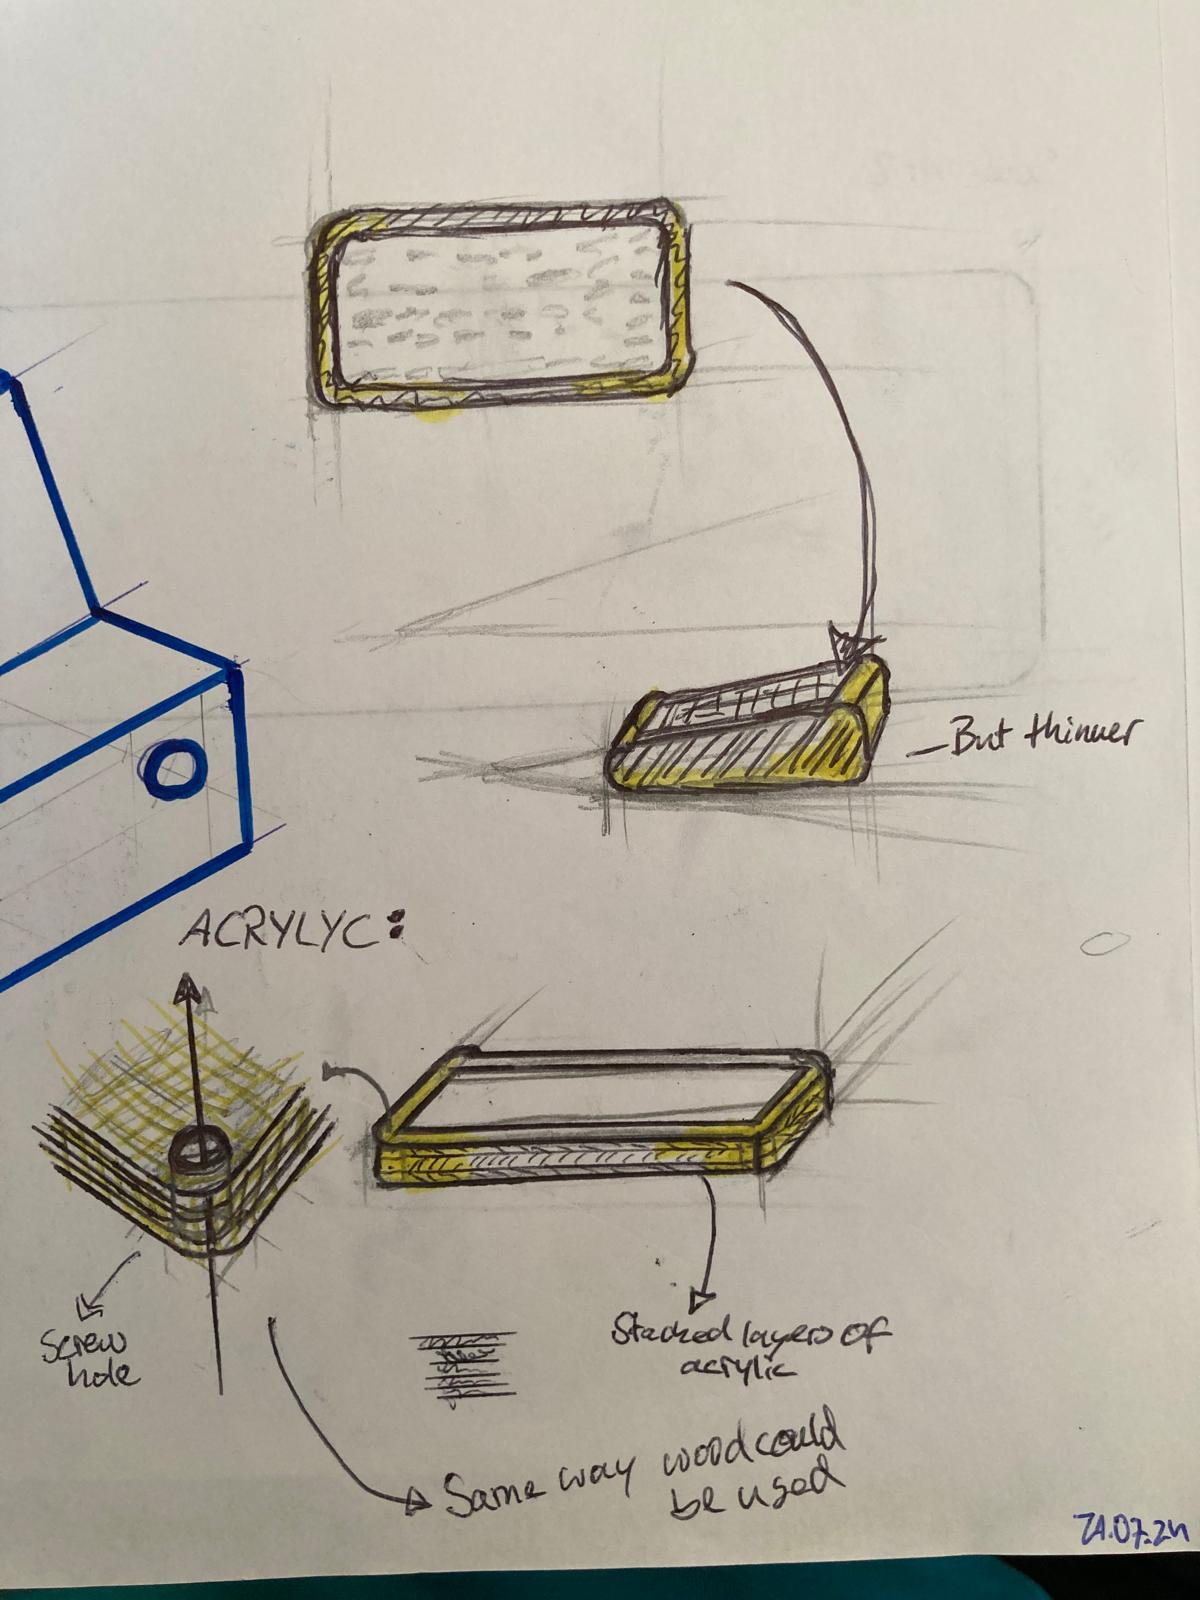 But thinner
ACRYLYC:
Screw
hole
Stacked layers of
acrylic
Same way wood could
be used